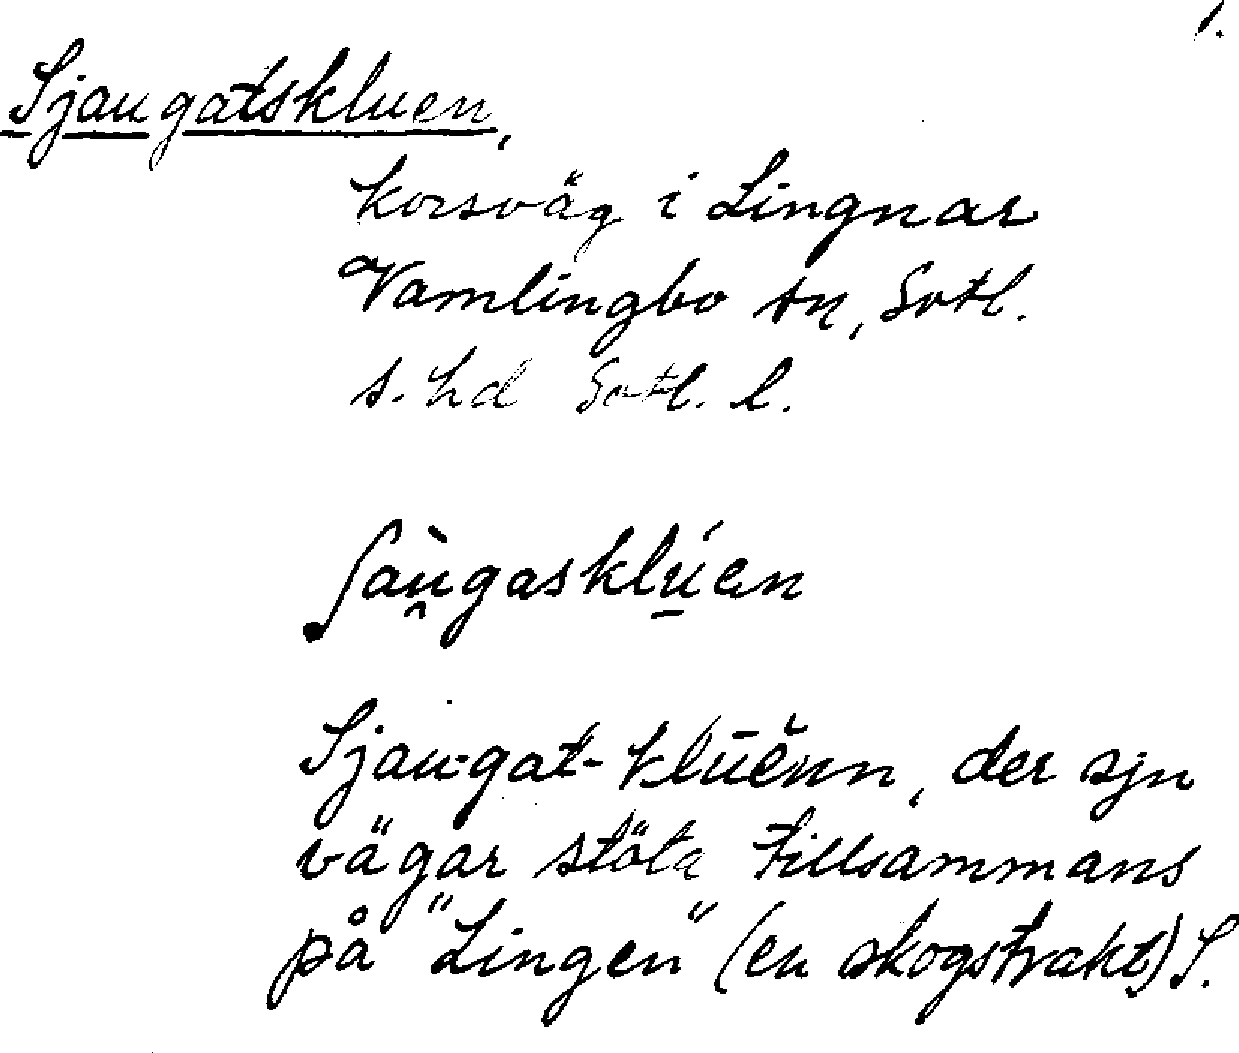 1.
Sjaugatskluen,
korsväg i Lingnar
Vamlingbo sn, Gotl.
s. hd Gotl. l.
ʃàu̯gasklú̱en
Sjau-gat-klūĕnn, der sju
vägar stöta tillsammans
på "Lingen" (en skogstrakt) S.